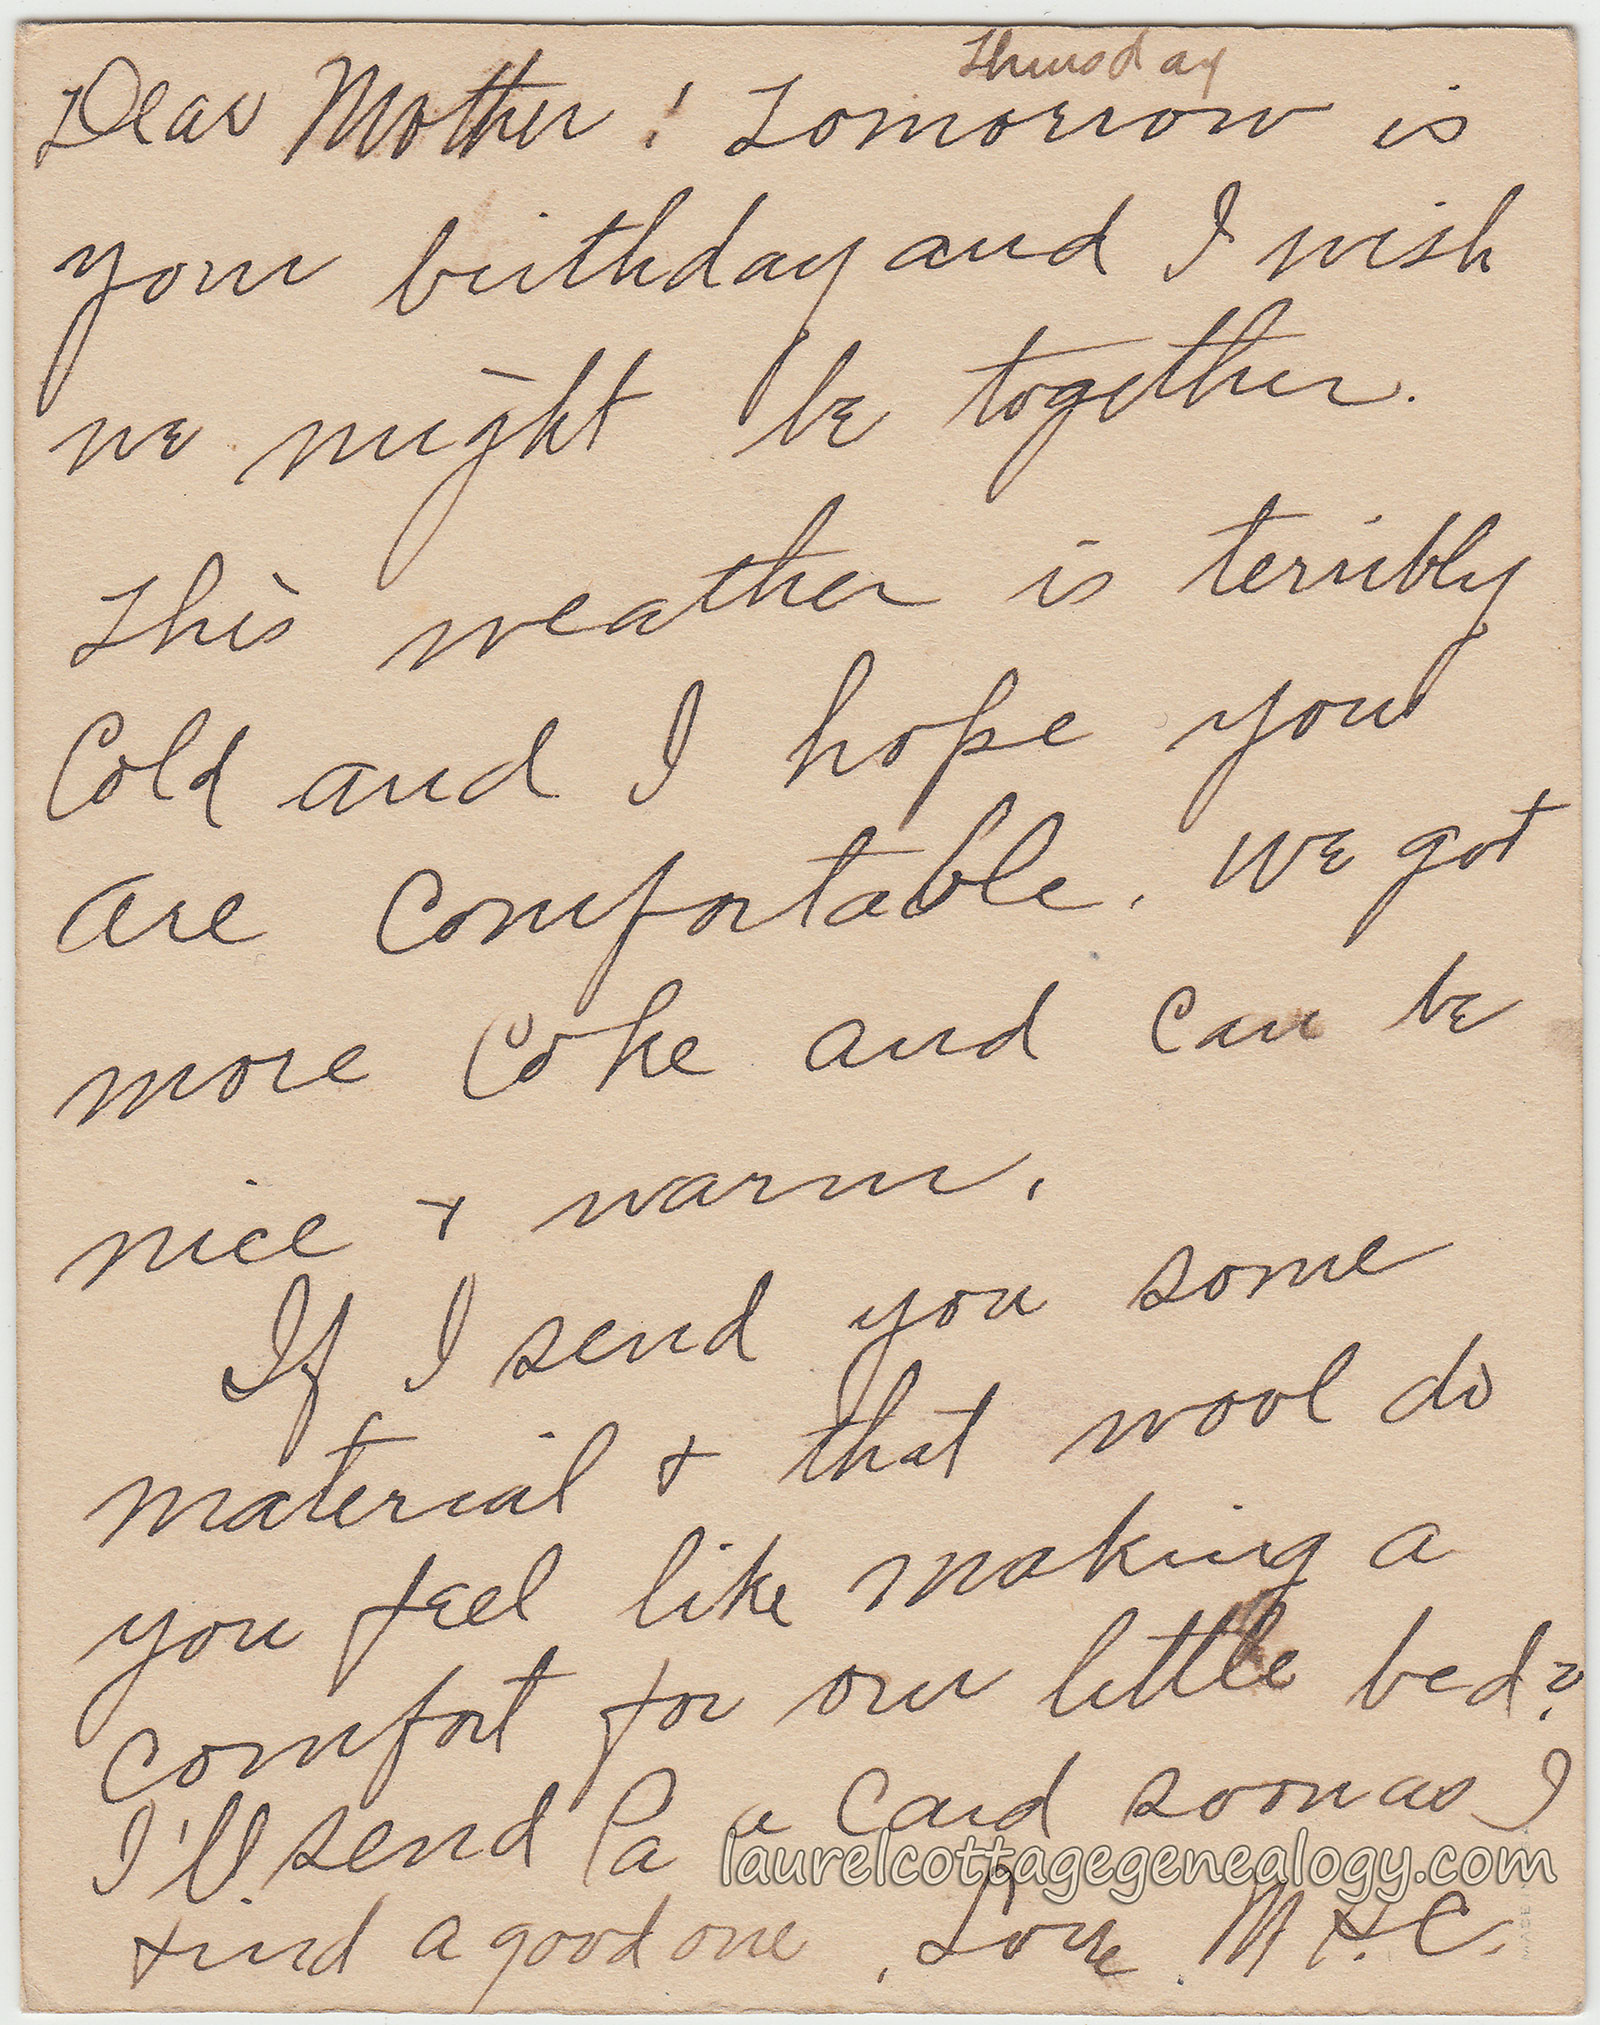 Thursday
Dear Mother! Tomorrow is
your birthday and I wish
we might be together.
This weather is terribly
Cold and I hope you
are Comfortable. We got
more Coke and Can be
nice + warm.
If I send you some
material + that wool do
you feel like making a
comfort for our little bed?
I'll send Pa a Card soon as I
find a good one. Love M.H.C.
laurelcottagegenealogy.com